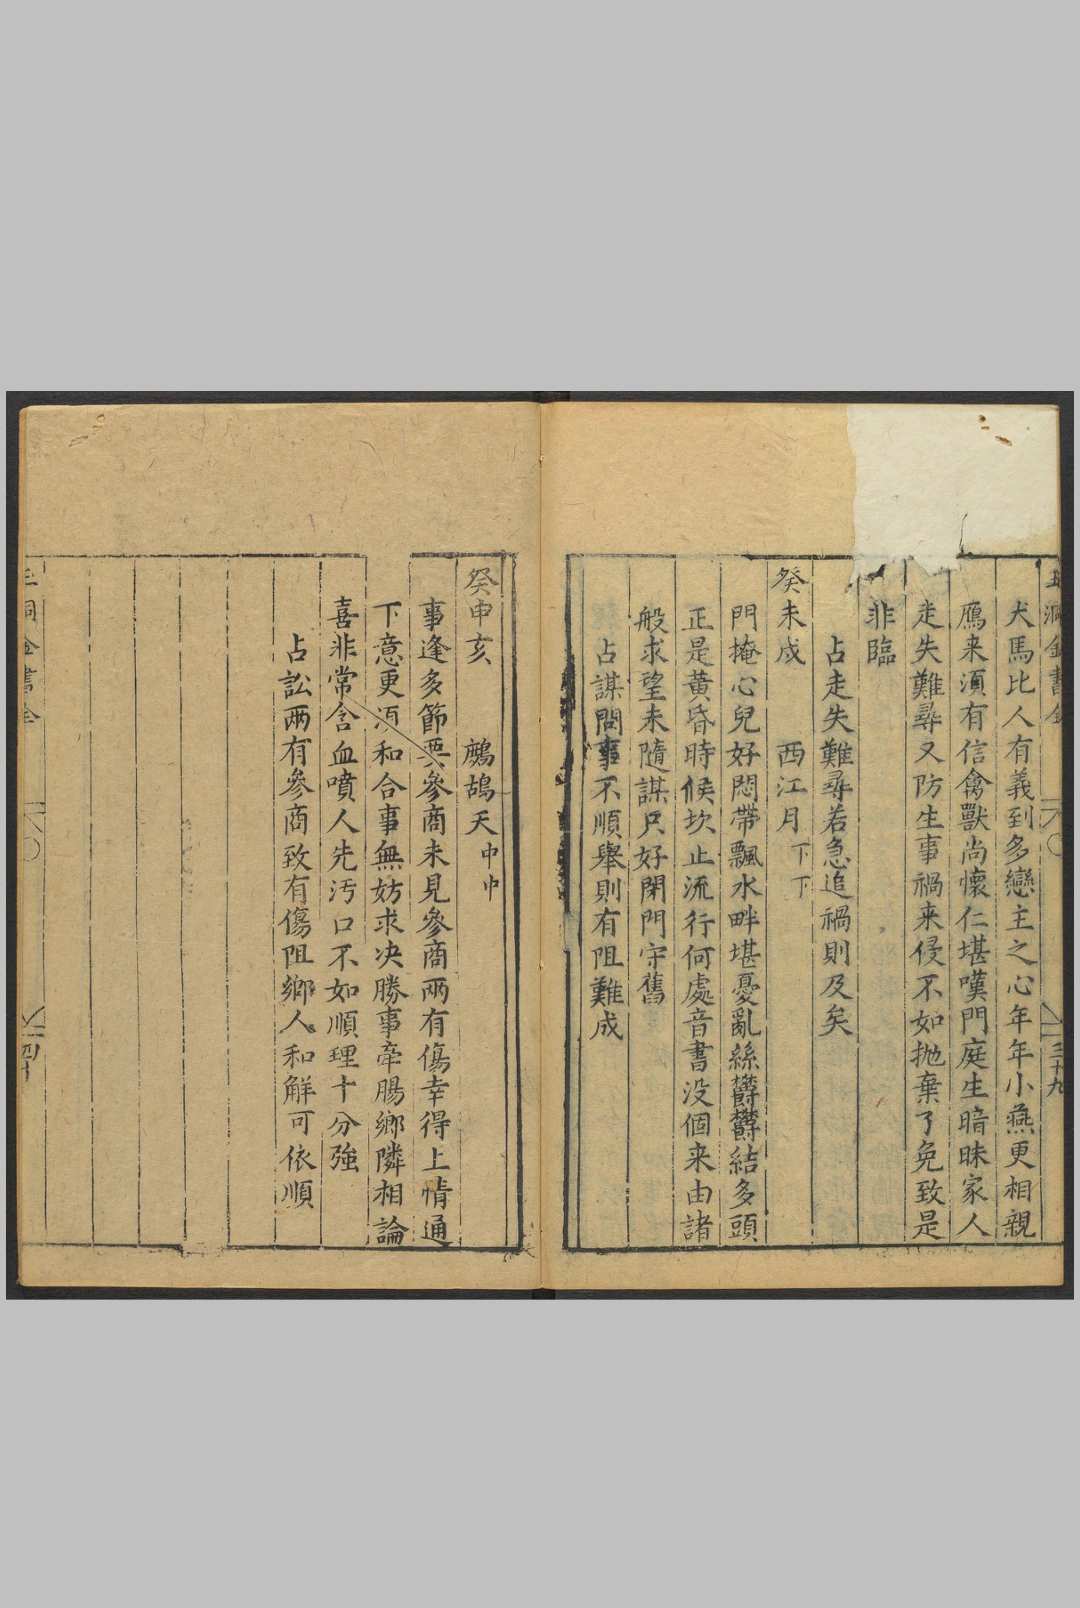 洞金書全
三十九
犬馬比人有義到多戀主之心年年小燕更相親
鴈来湏有信禽獸尚懷仁堪嘆門庭生暗昧家人
走失難尋又防生事禍来侵不如抛棄了免致是
非臨
占走失難尋若急追禍則及矣
癸未戍 西江月下下
門掩心兒好悶帶飄水畔堪憂亂絲欝欝結多頭
正是黄昏時候坎止流行何處音書没個来由諸
般求望未隨謀只好閉門守舊
占謀問事不順舉則有阻難成
癸申亥 鷓鴣天中中
事逢多節要參商未見參商兩有傷幸得上情通
下意更湏和合事無妨求决勝事牽腸鄉隣相論
喜非常含血噴人先污口不如順理十分強
占訟兩有參商致有傷阻鄉人和解可依順
洞金書全
四十